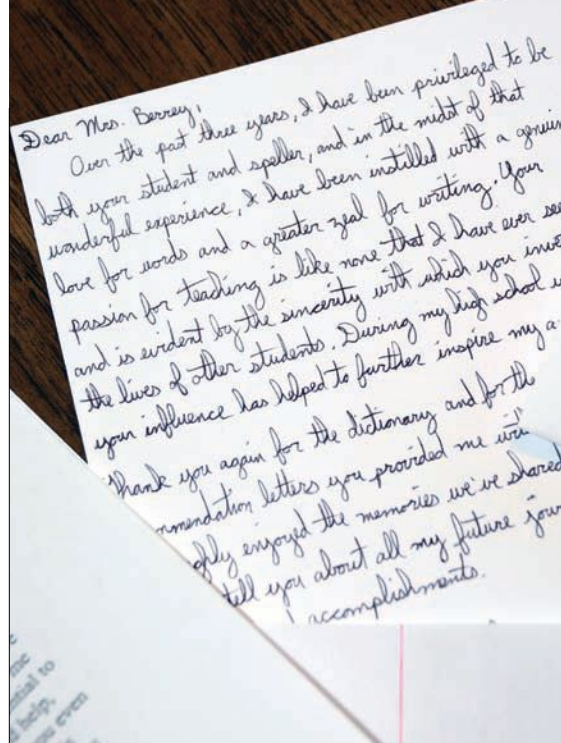 Dear Mrs. Berrey,
Over the past three years, I have been privileged to be
both your student and speller, and in the midst of that
wonderful experience, I have been instilled with a genuin
love for words and a greater zeal for writing. Your
passion for teaching is like none that I have ever see
and is evident by the sincerity with which you inve
the lives of other students. During my high school
your influence has helped to further inspire my a
Thank you again for the dictionary and for the
mmendation letters you provided me
enjoyed the memories we've shared
tell you about all my future jour
accomplishments.
me
ntial to
help.
ou even